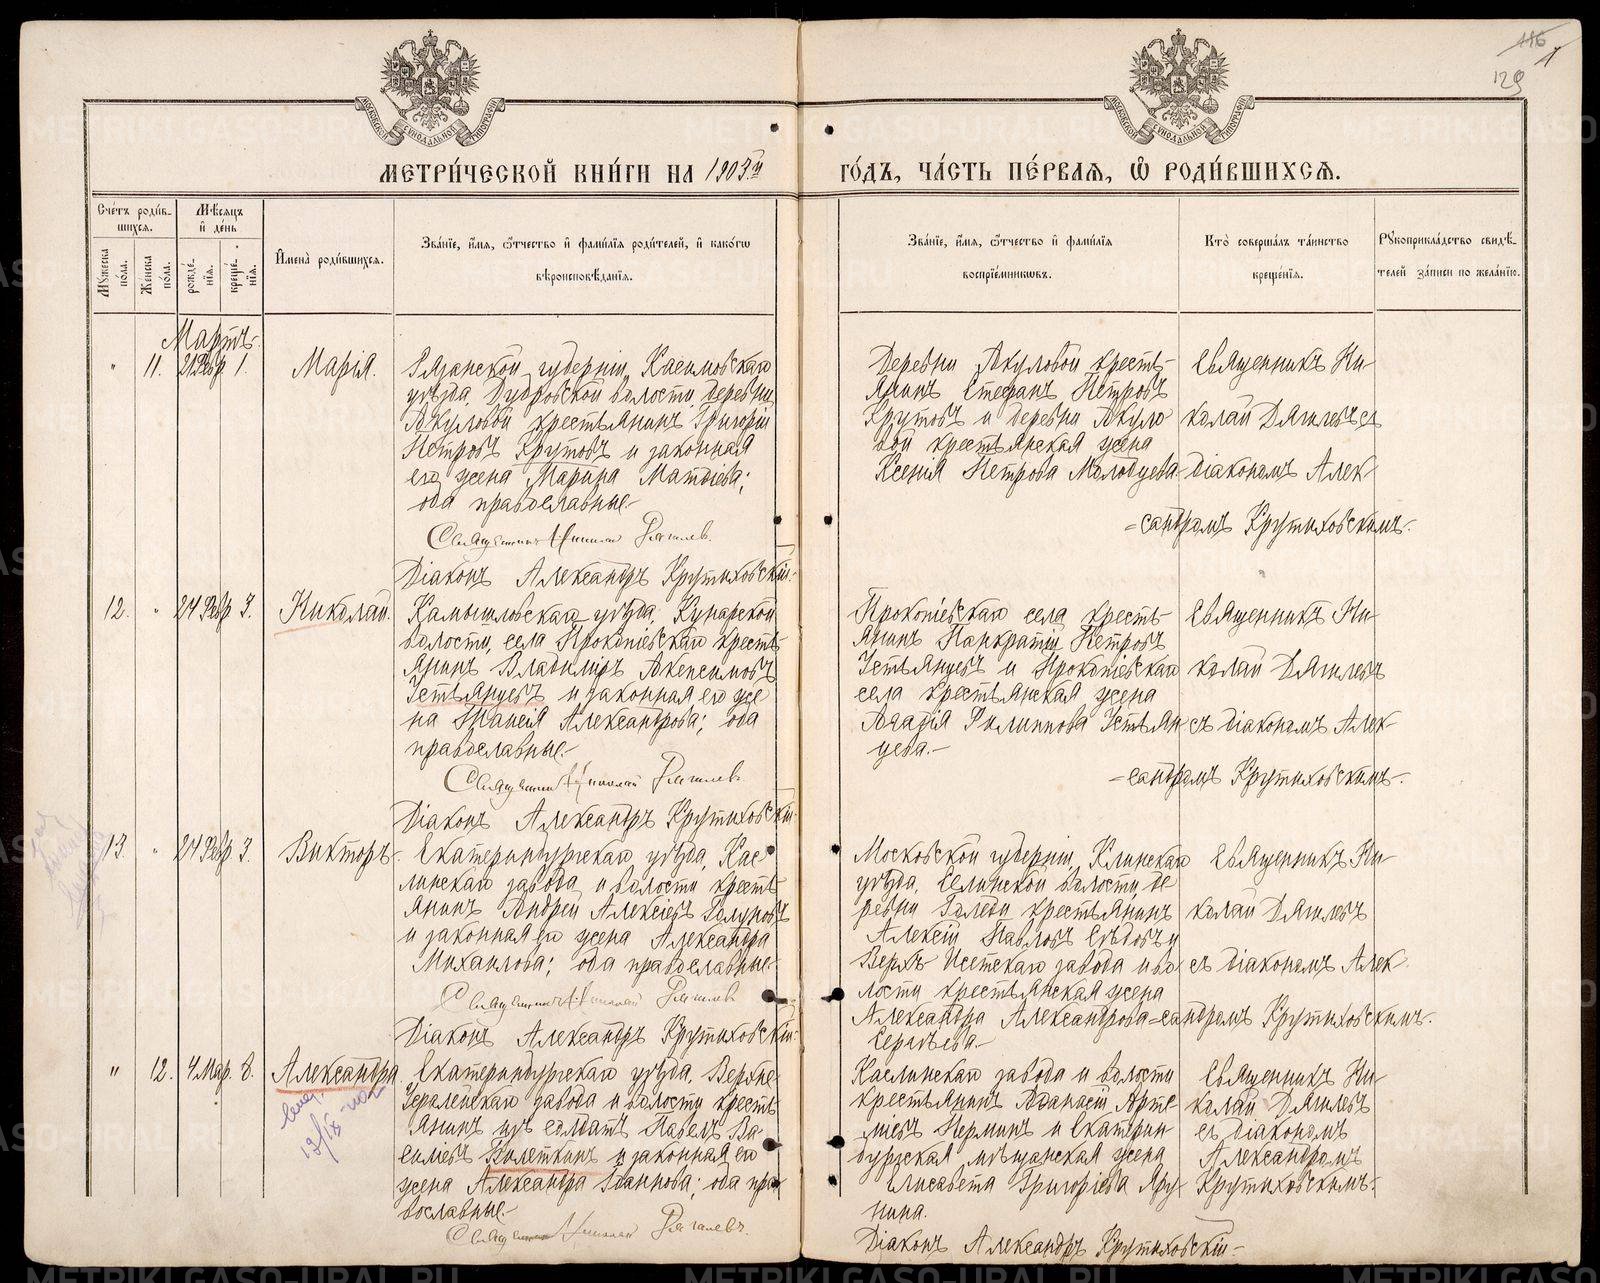 116
1
129
МЕТРИ́ЧЕСКОЙ КНИ́ГИ НА 1903й ГО́ДЪ, ЧА́СТЬ ПЕ́РВАЯ, Ѡ РОДИ́ВШИХСЯ.
Сче́тъ роди́вшихся.
Мѣ́сяцъ и́ де́нь
Му́жеска по́ла.
Же́нска по́ла.
рожде́нїя.
креще́нїя.
И҆мена̀ роди́вшихся.
Зва́нїе, и҆́мя, ѻ҆́тчество и҆ фами́лїя роди́телей, и҆ како́гѡ
вѣроисповѣ́данїя.
Зва́нїе, и҆́мя, ѻ҆́тчество и҆ фами́лїя
воспрїе́мниковъ.
Кто̀ соверша́лъ та́инство
креще́нїя.
Рꙋкоприкла́дство свидѣ́-
телей за́писи по жела́нїю.
Мартъ.
" 11. 21 Февр 1. Марія.
Рязанской губерніи, Касимовскаго
уѣзда, Дубровской волости, деревни
Акуловой крестьянинъ Григорій
Петровъ Крутовъ и законная
его жена Марина Матвіева;
оба православные.-
Священникъ Николай Дягилев.
Діаконъ Александръ Крутиховскій.
Деревни Акуловой кресть-
янинъ Стефанъ Петровъ
Крутовъ и деревни Акуло
вой крестьянская жена
Ксенія Петрова Молодцева-
Священникъ Ни-
колай Дягилевъ съ
діакономъ Алек-
-сандромъ Крутиховскимъ.
12. " 24 Февр 3. Николай.
Камышловскаго уѣзда, Кунарской
волости, села Прокопіевскаго кресть-
янинъ Владиміръ Акепсимовъ
Устьянцевъ и законная его же
на Таисія Александрова; оба
православные.-
Священникъ Николай Дягилевъ
Діаконъ Александръ Крутиховскій.
Прокопіевскаго села кресть-
янинъ Панкратій Петровъ
Устьянцевъ и Прокопіевскаго
села крестьянская жена
Агадія Филиппова Устьян
цева.-
Священникъ Ни-
колай Дягилевъ
съ діакономъ Алек-
-сандромъ Крутиховскимъ.
13. " 24 Февр 3. Викторъ.
Екатеринбургскаго уѣзда, Кас-
линскаго завода и волости кресть
янинъ Андрей Алексіевъ Голуновъ
и законная его жена Александра
Михаилова; оба православные.
Священникъ Николай Дягилевъ
Діаконъ Александръ Крутиховскій.
Московской губерніи, Клинскаго
уѣзда, Селинской волости, де
ревни Голяди крестьянинъ
Алексій Павловъ Сѣдовъ и
Верхъ-Исетскаго завода и во
лости крестьянская жена
Александра Александрова
Сергѣева.-
Священникъ Ни-
колай Дягилевъ
съ діакономъ Алек-
-сандромъ Крутиховскимъ.
" 12. 4 Мар. 8. Александра.
13/IX
Екатеринбургскаго уѣзда, Верхне-
Уфалейскаго завода и волости кресть
янинъ изъ солдатъ Павелъ Ва-
силіевъ Билеткинъ и законная его
жена Александра Іоаннова; оба пра-
вославные.-
Священникъ Николай Дягилевъ.
Каслинскаго завода и волости
крестьянинъ Аѳанасій Арте
міевъ Перминъ и Екатерин
бургская мѣщанская жена
Елисавета Григоріева Яру-
нина.
Священникъ Ни-
колай Дягилевъ
съ діакономъ
Александромъ
Крутиховскимъ.
Діаконъ Александръ Крутиховскій.-